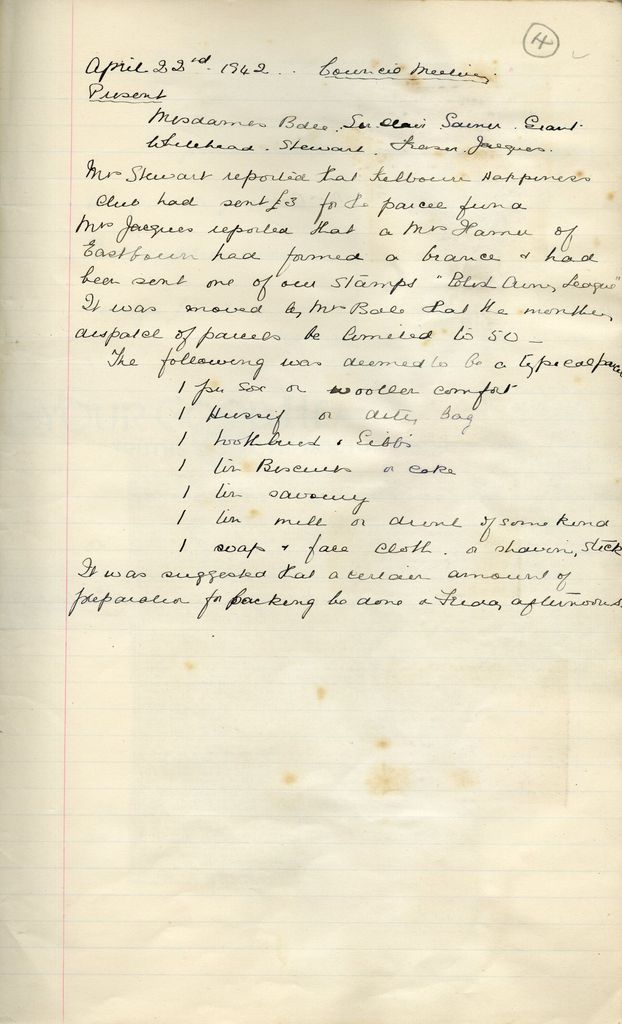 4
April 22nd 1942 .. Council Meeting
Present
Mesdames Bole. Sinclair Grant.
Whitehead. Stewart. Fraser. Jacques.
Mrs Stewart reported that Kelbourn Happiness
Club had sent £3 for the parcel fund
Mrs Jacques reported that a Mrs of
Eastbourn had formed a branch & had
been sent one of our stamps " Army League"
It was moved by Mrs Bole that the monthly
dispatch of parcels be limited to 50 -
The following was deemed to be a typical parcel
1 pr Sox or woollen comfort
1 Hussif or ditty bag
1 toothbrush & Gibbs
1 tin Biscuits or cake
1 tin savoury
1 tin milk or drink of some kind
1 soap & face cloth. or shaving stick
It was suggested that a certain amount of
preparation for packing be done on Friday afternoons.